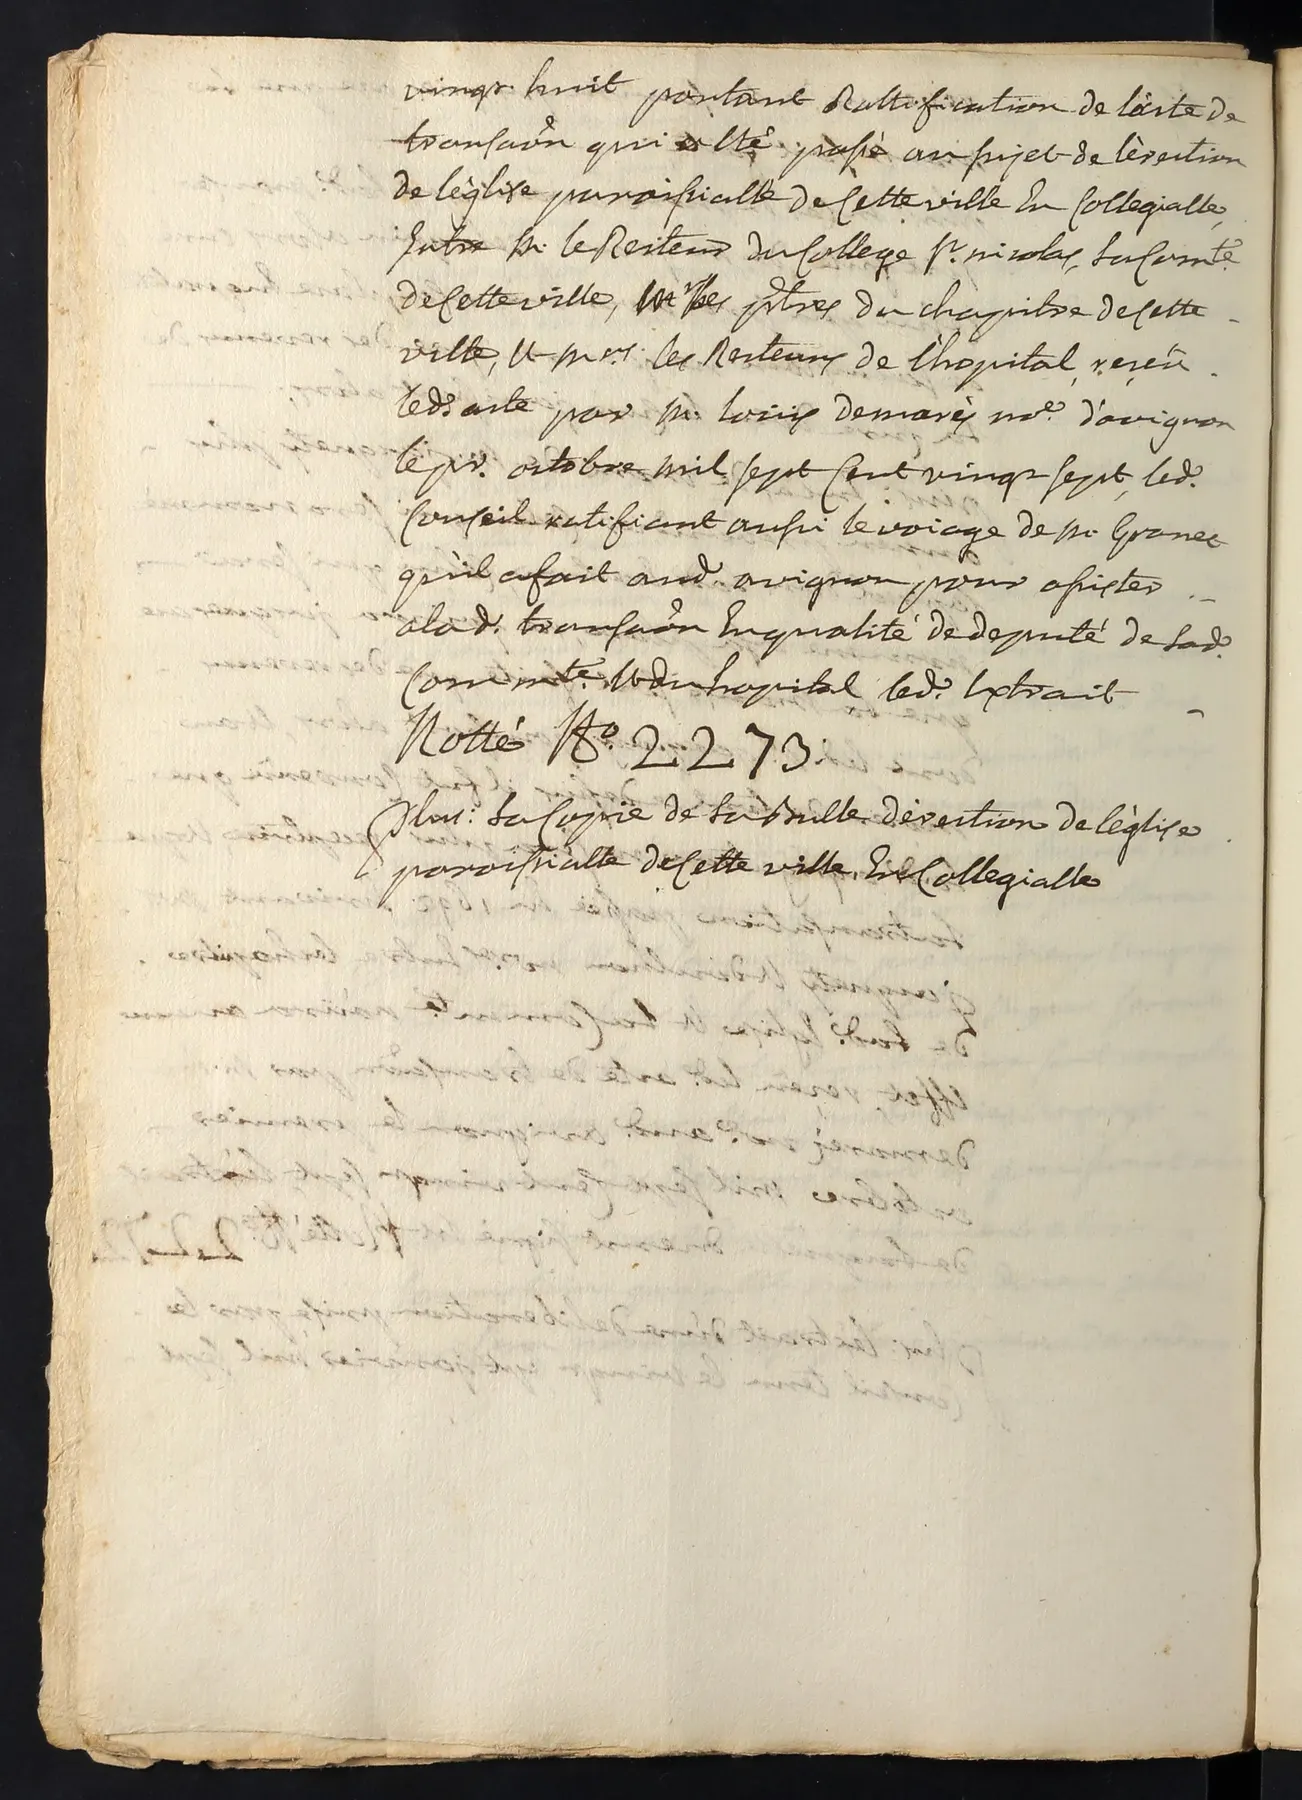 vingt huit portant Rattification de l'acte de
transaôn qui a êtté passé au sujet de l'èrection
de l'èglise paroissialle de Cette ville En Collegialle,
Entre Mr. le Recteur du College St. nicolas, la Comté.
de Cette ville, Mrs les ptres du chapitre de Cette
ville, Et mrs. les Recteurs de l'hopital, reçeu
led. acte par Mr. louis demarés nore. d'avignon
le pr. octobre mil sept Cent vingt sept, led.
Conseil ratifiant aussi le voiage de Mr. Granet
qu'il a fait aud. avignon pour assister
a lad. transaôn En qualité de deputé de lad.
Commté. Et du hopital led. Extrait
Notté No. 2273.
Plus: la Copie de la Bulle d'èrection de l'èglise
paroissialle de Cette ville En Collegialle